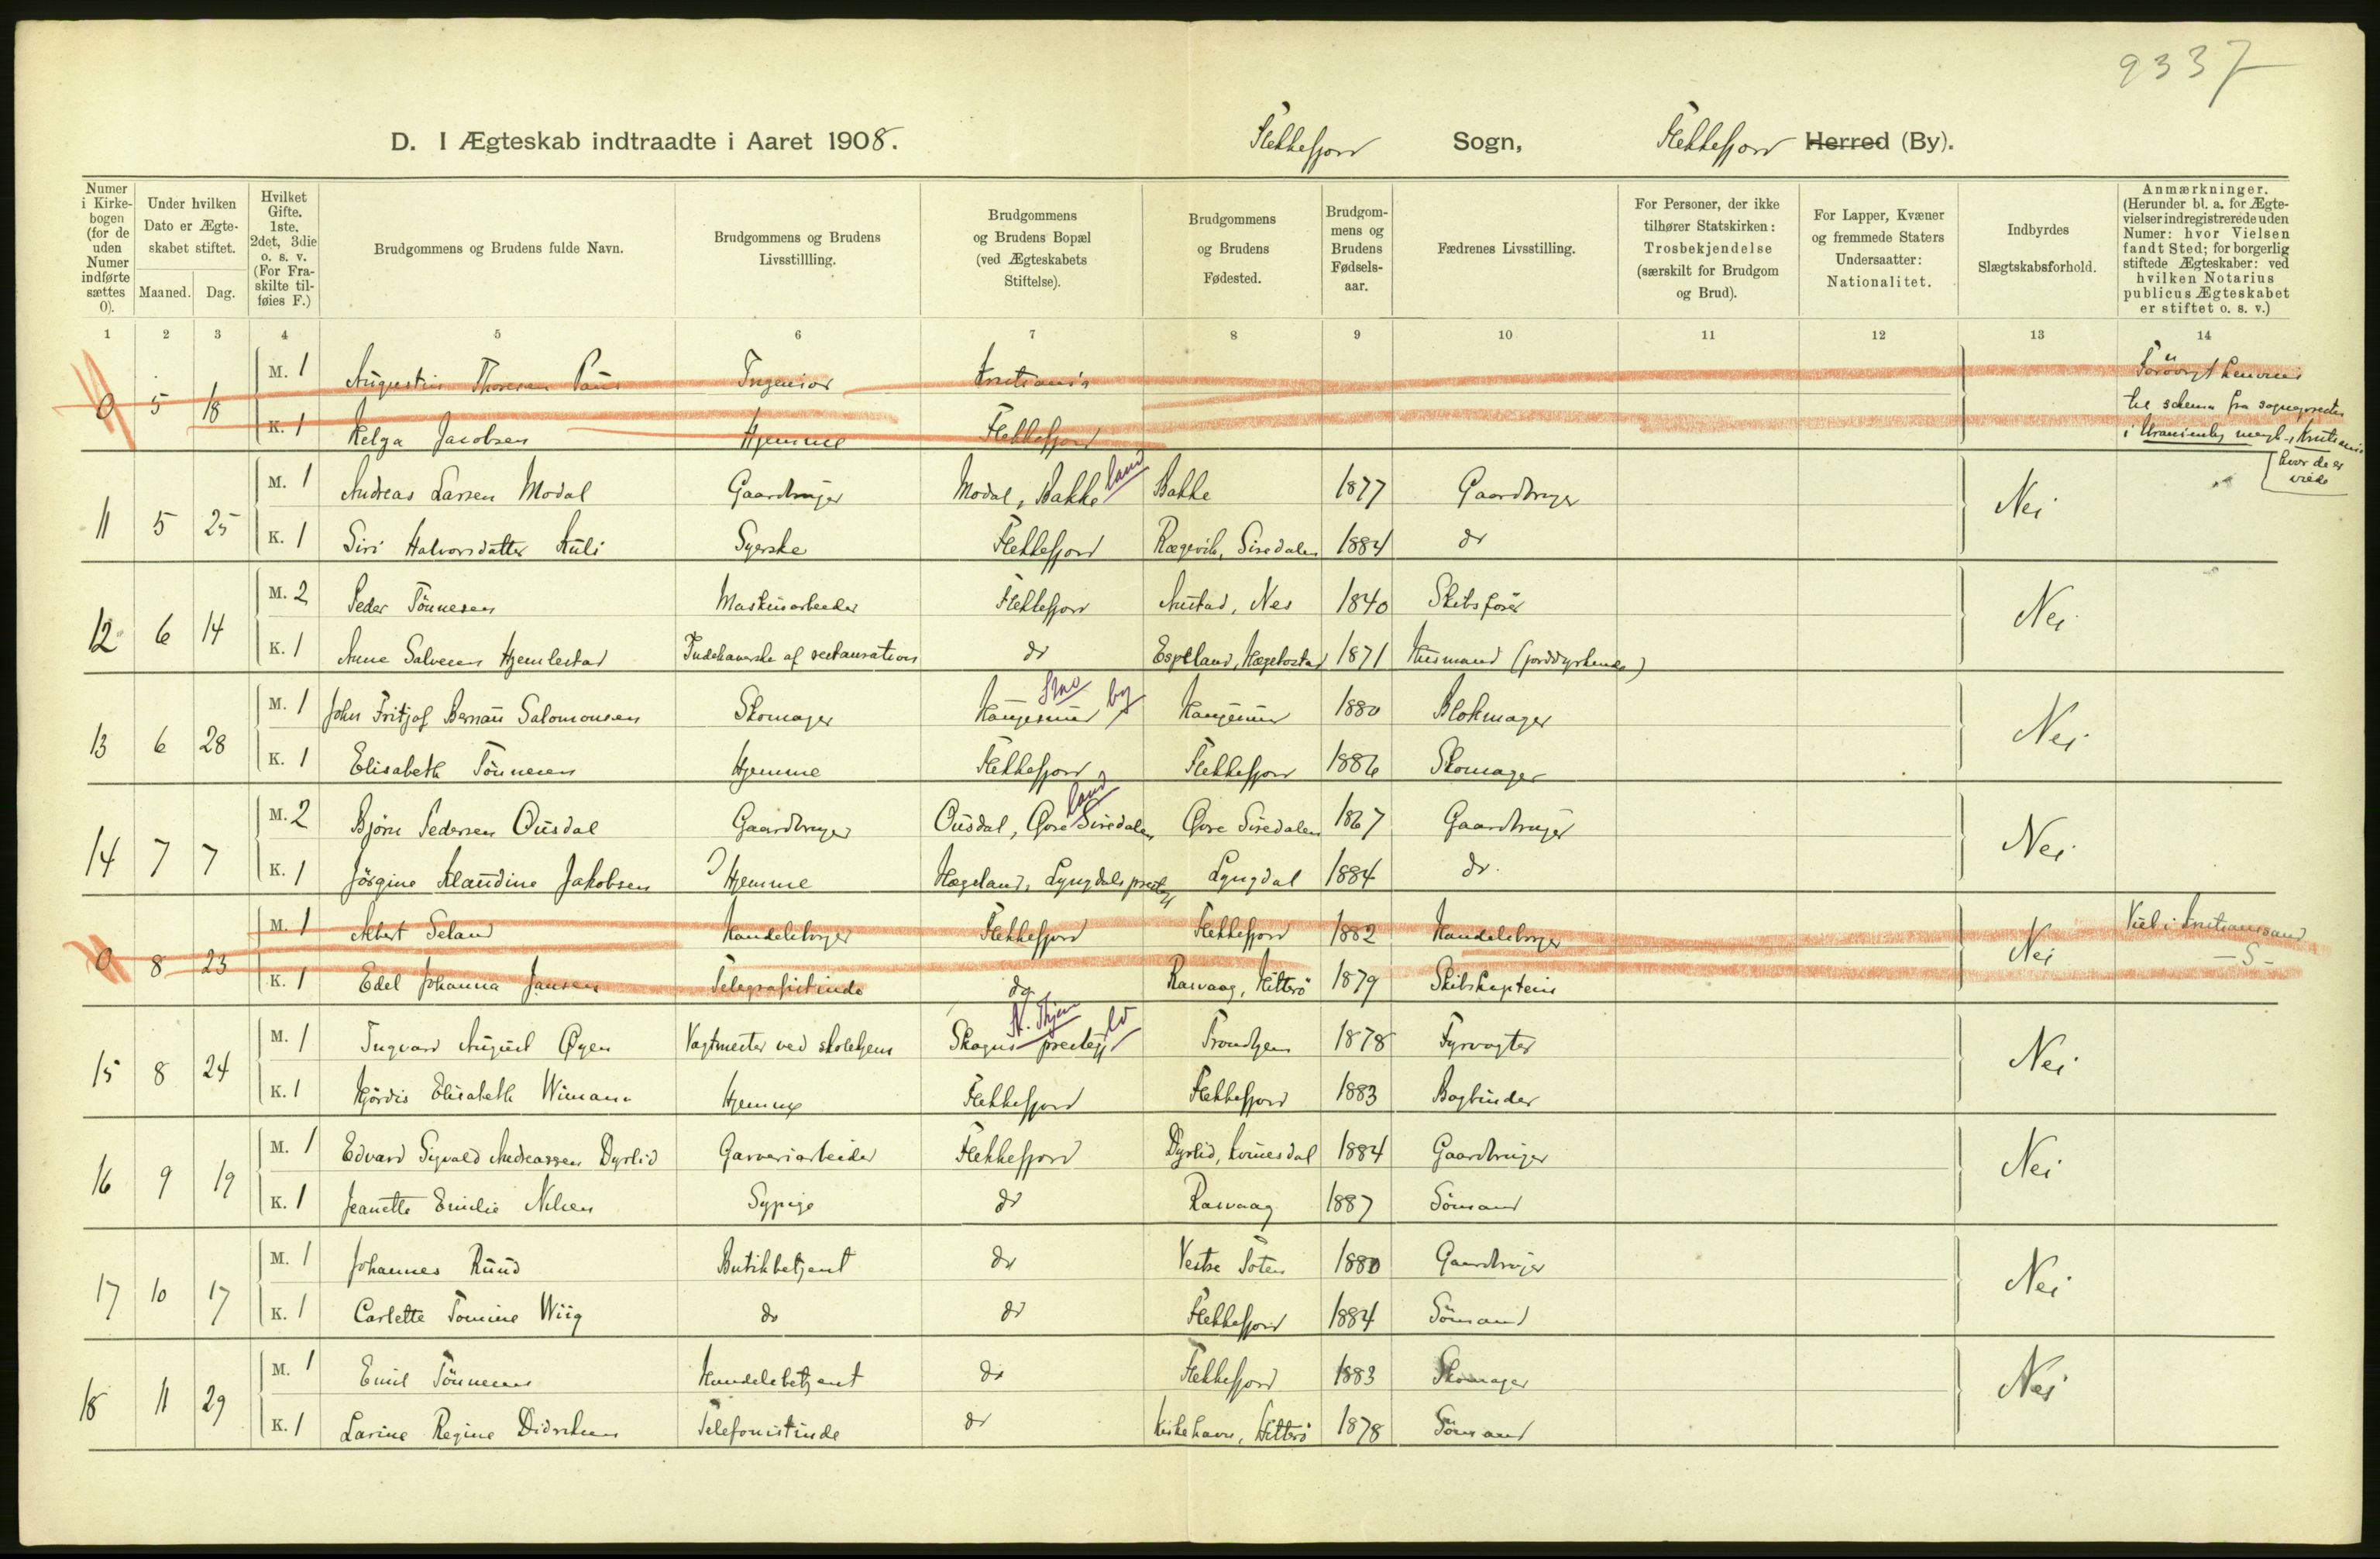 9337
D. I Ægteskab indtraadte i Aaret 1908. Flekkefjord Sogn, Flekkefjord Herred (By).
Numer i Kirkebogen (for de uden Numer indførte sættes 0).
Under hvilken Dato er Ægteskabet stiftet.
Maaned. Dag.
Hvilket Gifte. 1ste. 2det, 3die o. s. v. (For Fraskilte tilføies F.)
Brudgommens og Brudens fulde Navn.
Brudgommens og Brudens Livsstillling.
Brudgommens og Brudens Bopæl (ved Ægteskabets Stiftelse).
Brudgommens og Brudens Fødested.
Brudgommens og Brudens Fødselsaar.
Fædrenes Livsstilling.
For Personer, der ikke tilhører Statskirken: Trosbekjendelse (særskilt for Brudgom og Brud).
For Lapper, Kvæner og fremmede Staters Undersaatter: Nationalitet.
Indbyrdes Slægtskabsforhold.
Anmærkninger. (Herunder bl. a. for Ægtevielser indregistrerede uden Numer: hvor Vielsen fandt Sted; for borgerlig stiftede Ægteskaber: ved hvilken Notarius publicus Ægteskabet er stiftet o. s. v.)
1 2 3 4 5 6 7 8 9 10 11 12 13 14
0 5 18 M. 1 Augustin Thoresen Paus Ingeniør Kristiania Forövrigt henvises
til schema fra sognepresten
K. 1 Helga Jacobsen Hjemme Flekkefjord i Uranienborg megh., Kristiania
hvor de er
viede
11 5 25 M. 1 Andreas Larsen Modal Gaardbruger Modal, Bakke land Bakke 1877 Gaardbruger Nei
K. 1 Siri Halvorsdatter Kuli Syerske Flekkefjord Rægevik, Siredalen 1884 do
12 6 14 M. 2 Peder Tönnesen Maskinarbeider Flekkefjord Austad, Nes 1840 Skibsförer Nei
K. 1 Anne Salvesen Hjemlestad Indehaverske af restauration do Espeland, Hægebostad 1871 Husmand (jorddyrkende)
13 6 28 M. 1 John Fritjof Bernau Salomonsen Skomager Haugesund by Haugesund 1880 Blokmager Nei
K. 1 Elisabeth Tönnesen Hjemme Flekkefjord Flekkefjord 1886 Skomager
14 7 7 M. 2 Bjørn Pedersen Ousdal Gaardbruger Ousdal, Øvre Siredalen land Øvre Siredalen 1867 Gaardbruger Nei
K. 1 Jörgine Klaudine Jakobsen Hjemme Hægeland, Lyngdals prestegj Lyngdal 1884 do.
0 8 23 M. 1 Albert Seland Handelsborger Flekkefjord Flekkefjord 1882 Handelsborger Nei Viet i Kristianssand
K. 1 Edel Johanna Jansen Telegrafistinde do Rasvaag, Hitterö 1879 Skibskaptein — S —
15 8 24 M. 1 Ingvard August Øyen Vagtmester ved skolehjem Skogns prestegj N. Thjem ld Trondhjem 1878 Fyrvogter Nei
K. 1 Hjördis Elisabeth Wimann Hjemme Flekkefjord Flekkefjord 1883 Bogbinder
16 9 19 M. 1 Edvard Sigvald Andreassen Dyrlid Garveriarbeider Flekkefjord Dyrlid, Kvinesdal 1884 Gaardbruger Nei
K. 1 Jeanette Emilie Nilsen Sypige do Rasvaag 1887 Sömand
17 10 17 M. 1 Johannes Ruud Butikbetjent do Vestre Toten 1880 Gaardbruger Nei
K. 1 Carlette Tomine Wiig do do Flekkefjord 1884 Sömand
18 11 29 M. 1 Emil Tönnesen Handelsbetjent do Flekkefjord 1883 Skomager Nei
K. 1 Larine Regine Didriksen Telefonistinde do Kirkehavn, Hitterö 1878 Sömand